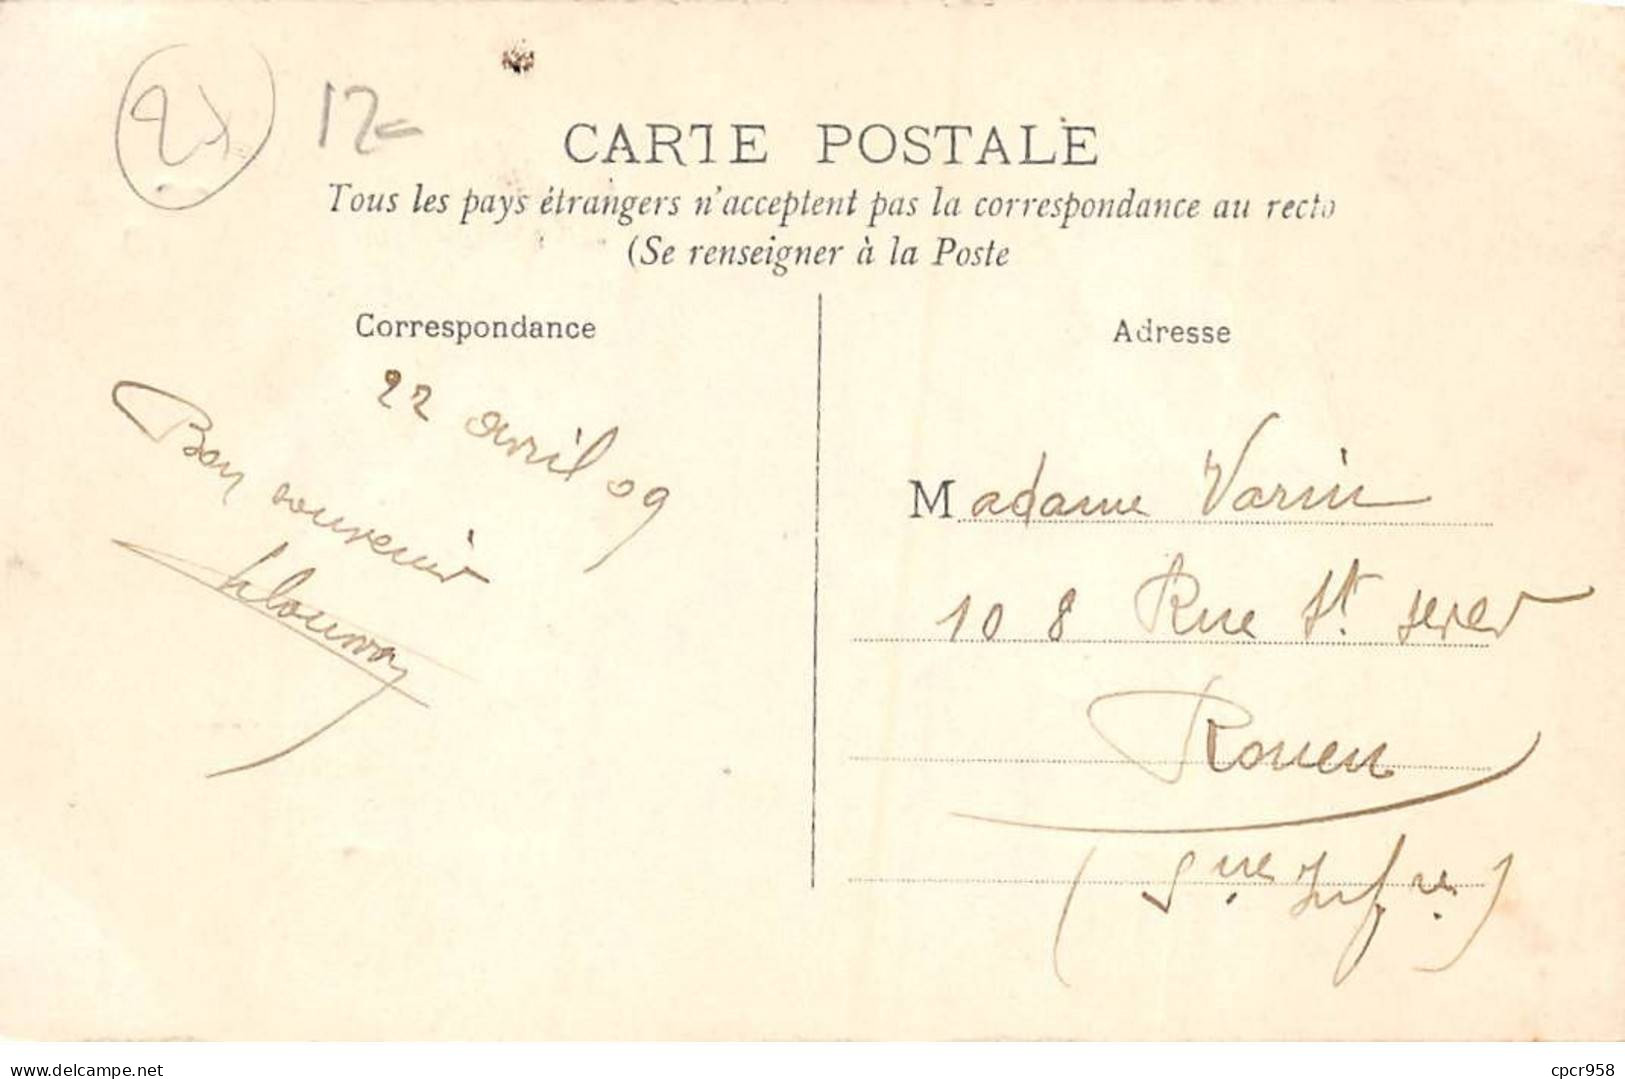 12=
CARTE POSTALE
Tous les pays étrangers n'acceptent pas la correspondance au recto
(Se renseigner à la Poste
Correspondance
22 avril 09
Bon souvenir
Adresse
Madame Varin
108 Rue St. sever
Rouen
(Sne. Infre.)
www.delcampe.net
cpcr958